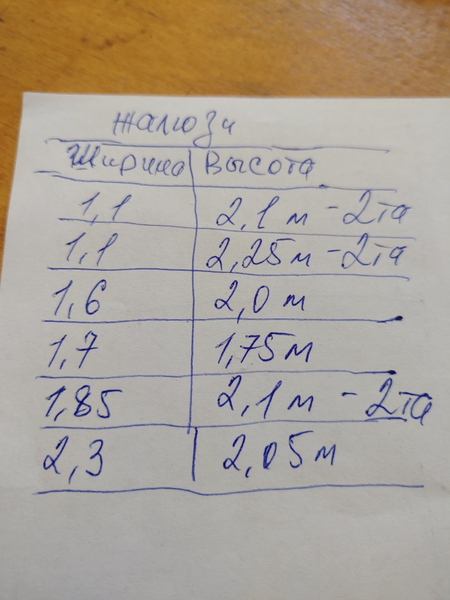 Жалюзи
Ширина Высота
1,1 2,1 м - 2та
1,1 2,25 м - 2та
1,6 2,0 м
1,7 1,75 м
1,85 2,1 м - 2та
2,3 2,05 м